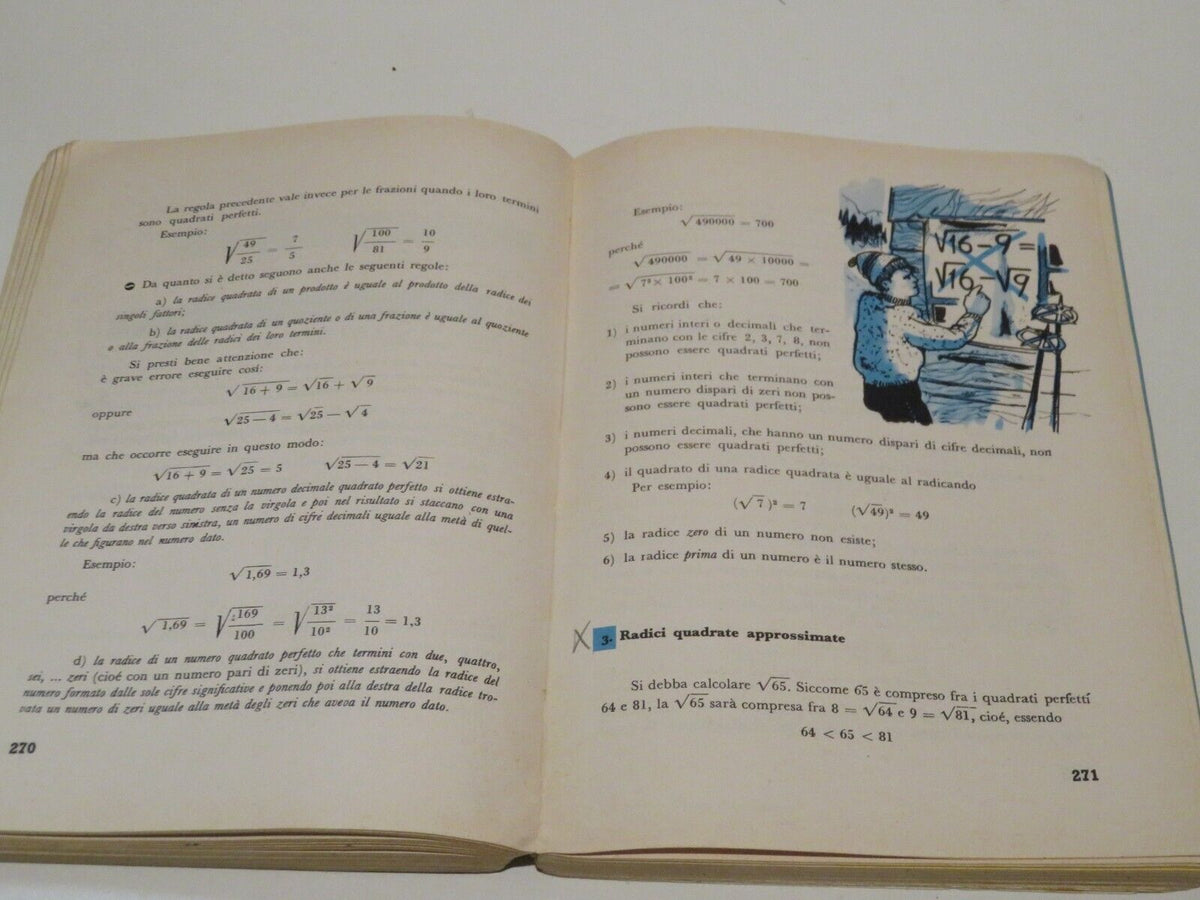 La regola precedente vale invece per le frazioni quando i loro termini
sono quadrati perfetti.
Esempio:
√49/25 = 7/5 √100/81 = 10/9
Da quanto si è detto seguono anche le seguenti regole:
a) la radice quadrata di un prodotto è uguale al prodotto della radice dei
singoli fattori;
b) la radice quadrata di un quoziente o di una frazione è uguale al quoziente
o alla frazione delle radici dei loro termini.
Si presti bene attenzione che:
è grave errore eseguire così:
√16 + 9 = √16 + √9
oppure
√25 — 4 = √25 — √4
ma che occorre eseguire in questo modo:
√16 + 9 = √25 = 5 √25 — 4 = √21
c) la radice quadrata di un numero decimale quadrato perfetto si ottiene estra-
endo la radice del numero senza la virgola e poi nel risultato si staccano con una
virgola da destra verso sinistra, un numero di cifre decimali uguale alla metà di quel-
le che figurano nel numero dato.
Esempio:
√1,69 = 1,3
perché
√1,69 = √169/100 = √13²/10² = 13/10 = 1,3
d) la radice di un numero quadrato perfetto che termini con due, quattro,
sei, ... zeri (cioé con un numero pari di zeri), si ottiene estraendo la radice del
numero formato dalle sole cifre significative e ponendo poi alla destra della radice tro-
vata un numero di zeri uguale alla metà degli zeri che aveva il numero dato.
270
Esempio:
√490000 = 700
perché
√490000 = √49 × 10000 =
= √7² × 100² = 7 × 100 = 700
√16-9 =
√16-√9
Si ricordi che:
1) i numeri interi o decimali che ter-
minano con le cifre 2, 3, 7, 8, non
possono essere quadrati perfetti;
2) i numeri interi che terminano con
un numero dispari di zeri non pos-
sono essere quadrati perfetti;
3) i numeri decimali, che hanno un numero dispari di cifre decimali, non
possono essere quadrati perfetti;
4) il quadrato di una radice quadrata è uguale al radicando
Per esempio:
(√7)² = 7 (√49)² = 49
5) la radice zero di un numero non esiste;
6) la radice prima di un numero è il numero stesso.
3. Radici quadrate approssimate
Si debba calcolare √65. Siccome 65 è compreso fra i quadrati perfetti
64 e 81, la √65 sarà compresa fra 8 = √64 e 9 = √81, cioé, essendo
64 < 65 < 81
271